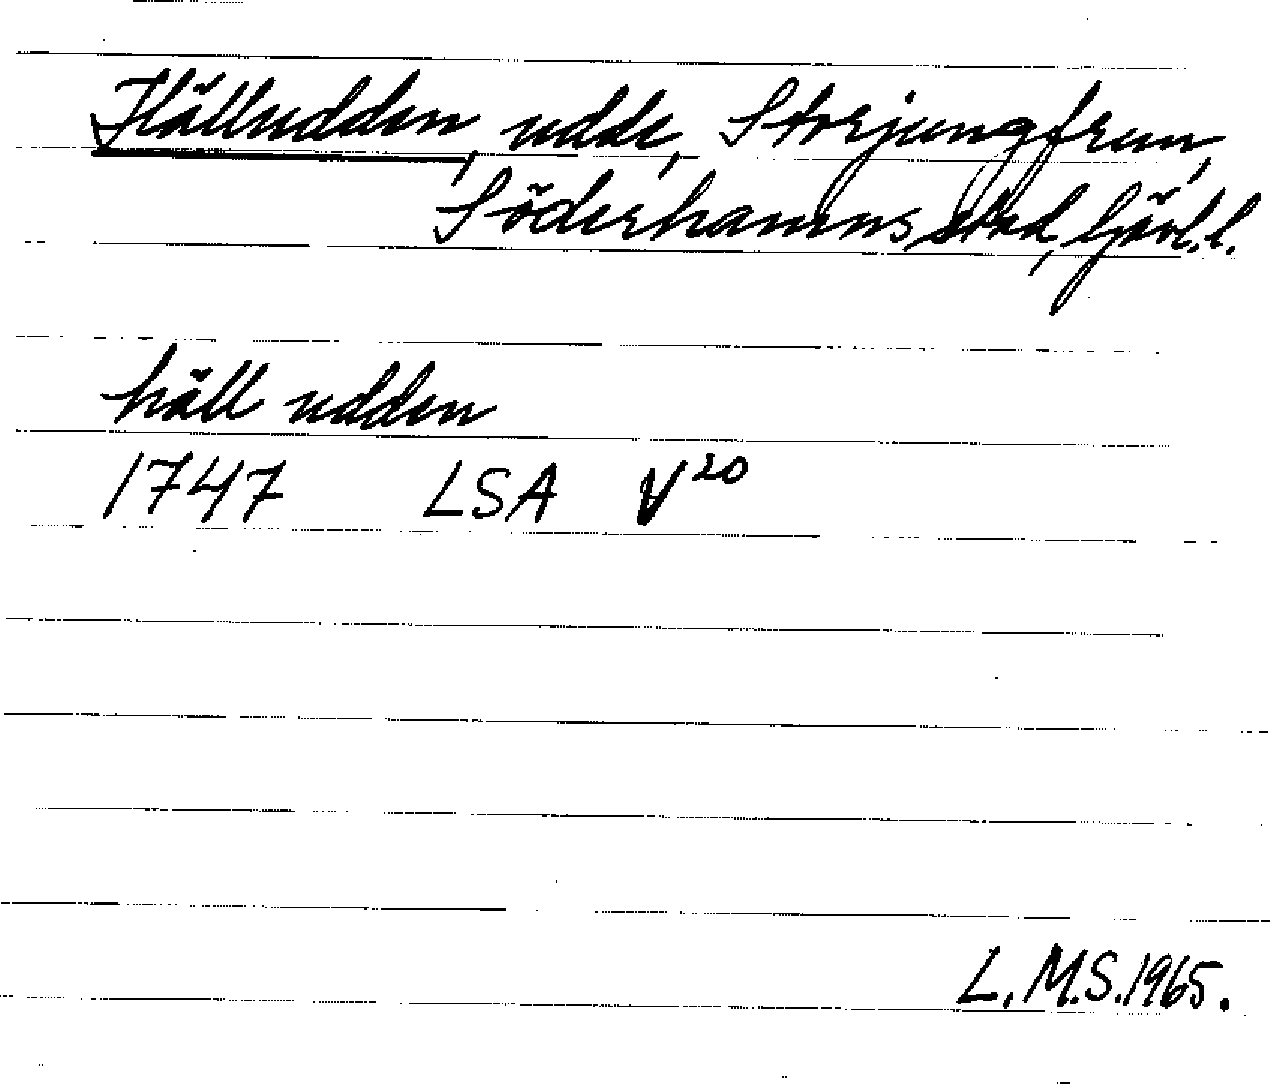 Hälludden, udde, Storjungfrun,
Söderhamns stad, Gävl. l.
häll udden
1747 LSA V20
L.M.S. 1965.